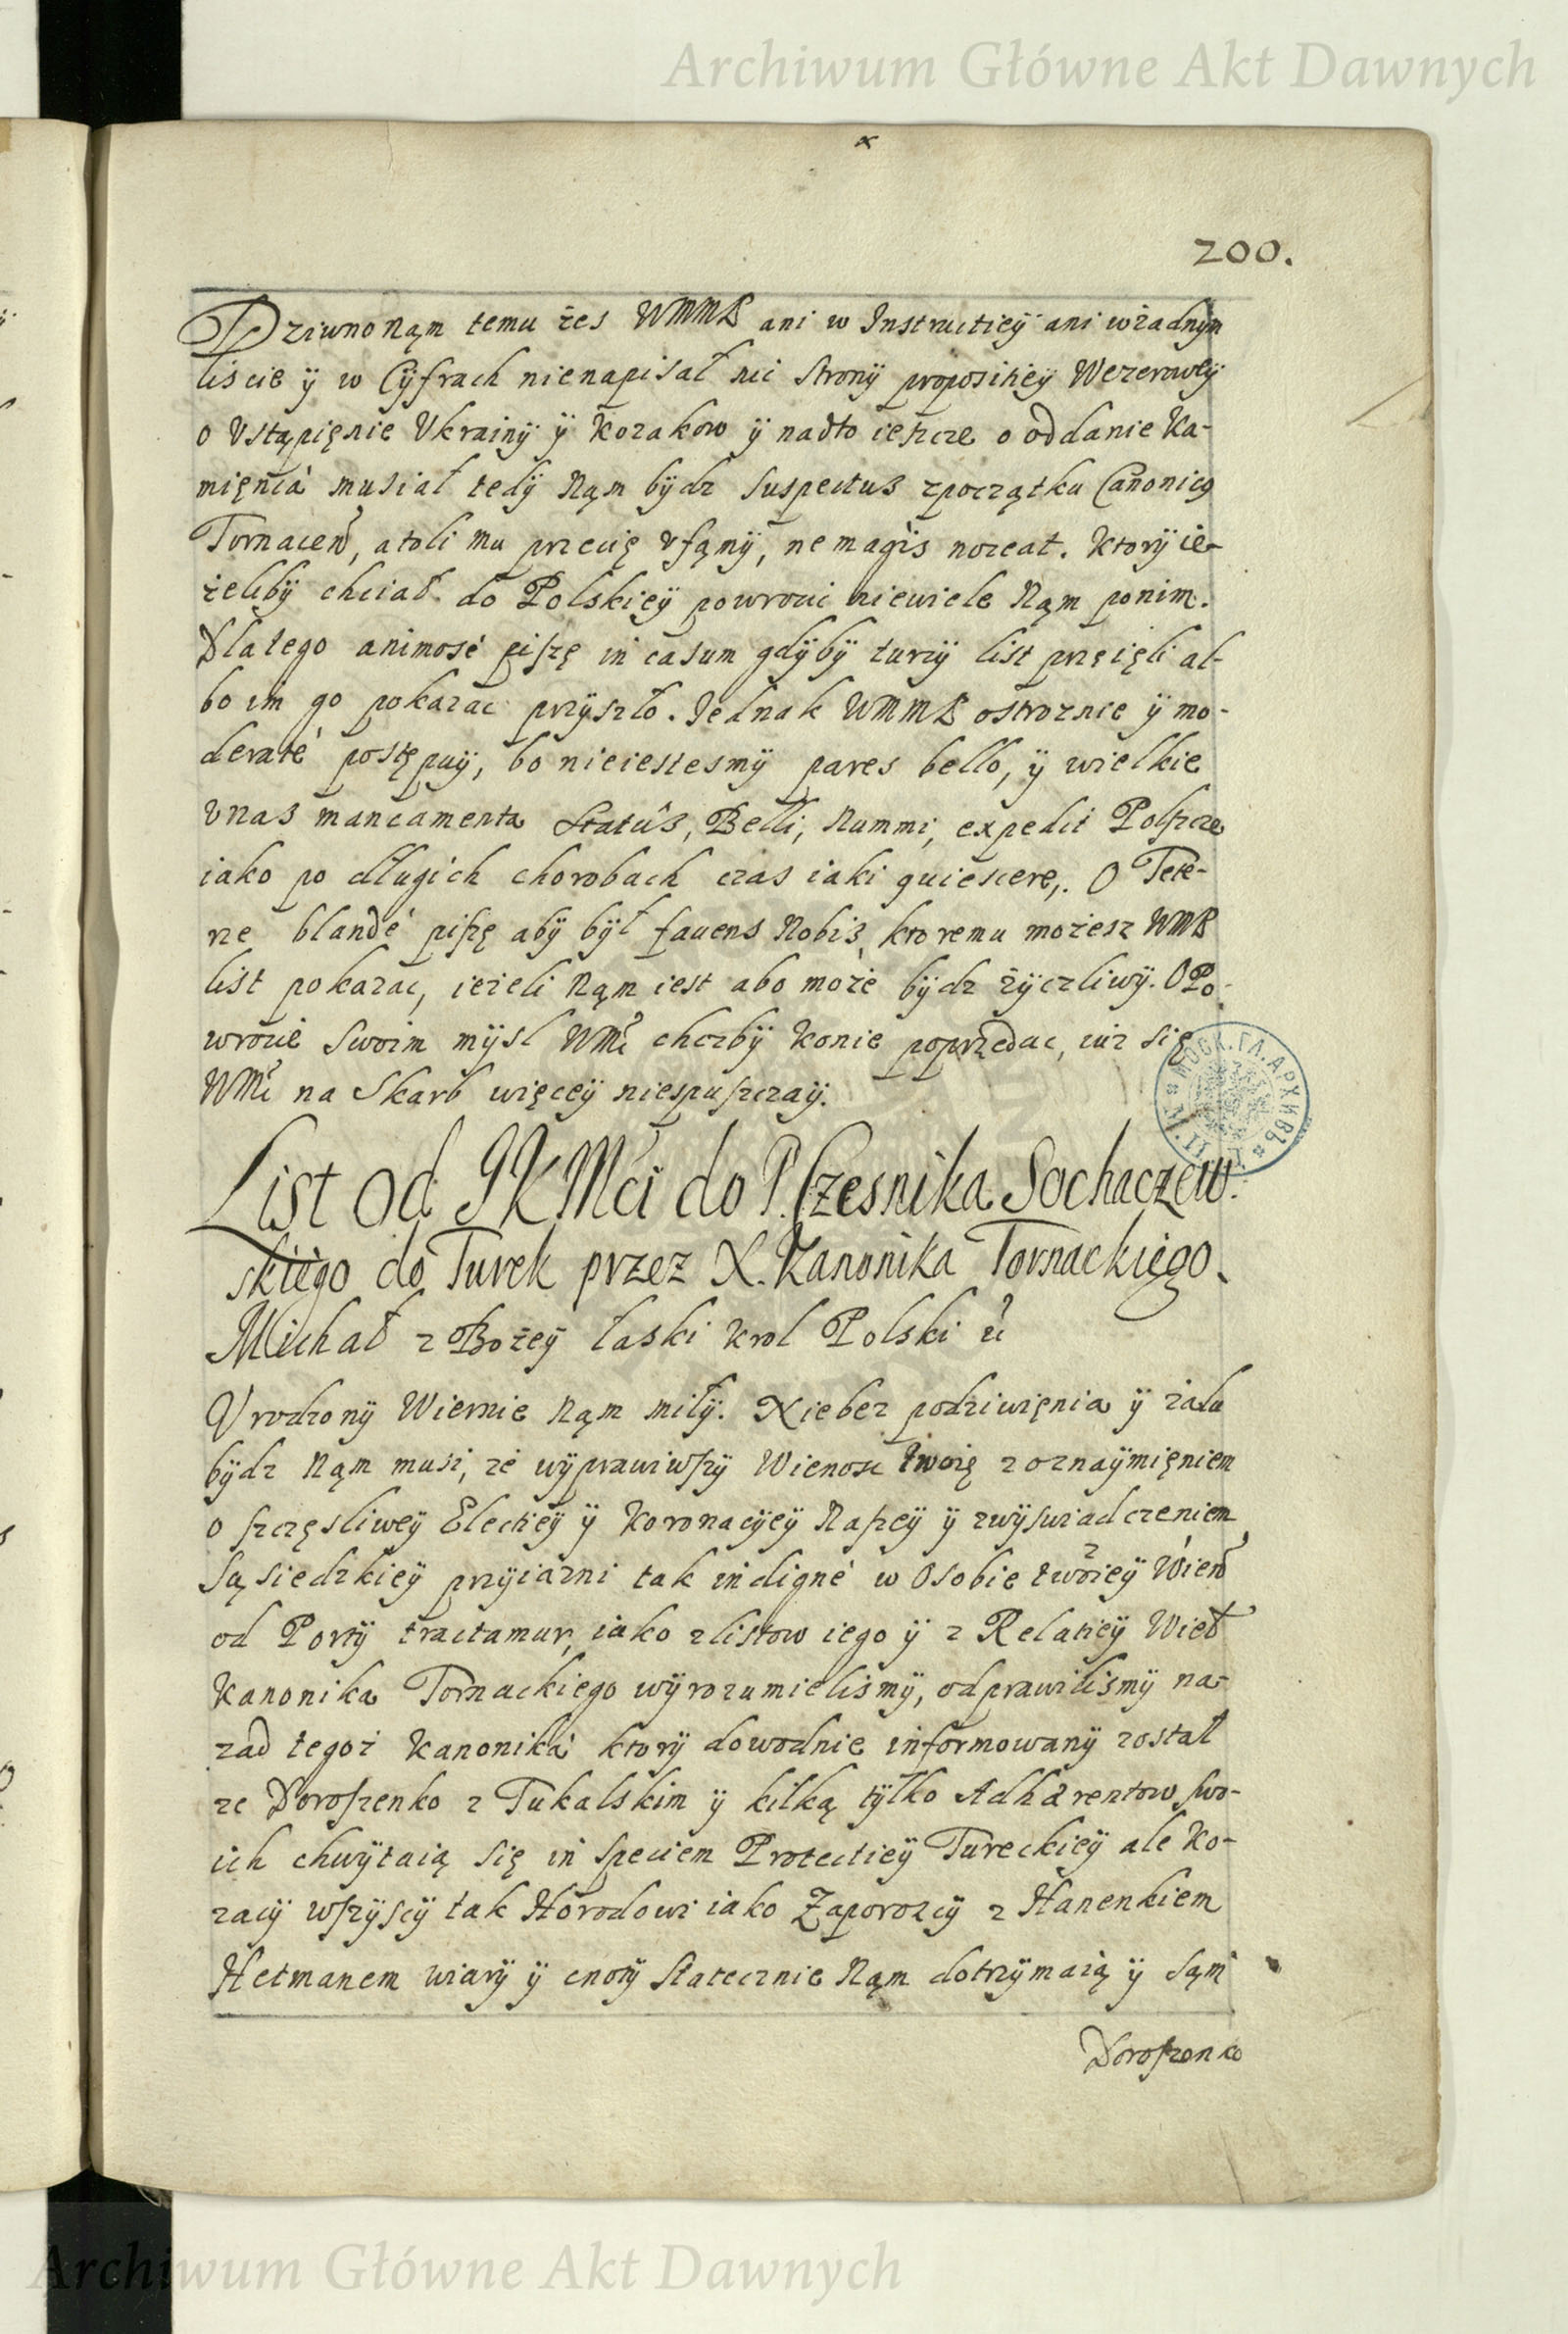 Archiwum Główne Akt Dawnych
200.
Dziwno Nąm temu żes WMMP ani w Instructieÿ ani wżadnÿm
liscie ÿ w Cÿfrach nienapisał nic stronÿ propositieÿ Wezeroweÿ
o Vstąpięnie Vkrainÿ ÿ Kozakow ÿ nadto ieszcze o oddanie Ka-
mięnca musiał tedÿ Nąm bÿdz suspectus zpoczątku Canonicus
Tornacen, atoli mu przecię vfąmÿ, ne magis noceat. Ktorÿ ie-
żelibÿ chciał do Polskieÿ powroci niewiele Nąm ponim.
Dlatego animosé piszę in casum gdÿbÿ turcÿ list przeięli al-
bo im go pokazac przÿszło. Jednak WMMP ostroznie ÿ mo-
deraté postępuÿ, bo nieiestesmÿ pares bello, ÿ wielkie
Vnas mancamenta Statûs, Belli, Nummi, expedit Polszcze
iako po długich chorobach czas iaki quiescere,. O Tete-
rze blandé piszę abÿ bÿł fauens Nobis, ktoremu mozesz WMP
list pokazac, iezeli Nąm iest abo może bÿdz żÿczliwÿ. O Po-
wrocie swoim mÿsl WMć chozbÿ Konie poprzedac, iuz się
WMć na Skarb więceÿ niespuszczaÿ.
List od JKMci do P. Czesnika Sochaczew.
skiego do Turek przez X. Kanonika Tornackiego.
Michał z Bożeÿ łaski Krol Polski ić
Vrodzonÿ Wiernie Nąm miłÿ. Niebez podziwięnia ÿ żalu
bÿdz Nąm musi, ze wÿprawiwszÿ Wienosc twoię z oznaÿmięniem
o szczęsliweÿ Electieÿ ÿ Koronacÿeÿ Naszeÿ ÿ zwÿswiadczeniem
Sąsiedzkieÿ przÿiazni tak indigné w Osobie twoieÿ Wien
od Portÿ tractamur, iako zlistow iego ÿ z Relatieÿ Wieł
Kanonika Tornackiego wÿrozumielismÿ, odprawilismÿ na-
zad tegoż Kanonika ktorÿ dowodnie informowanÿ został
ze Doroszenko z Tukalskim ÿ kilką tÿlko Adhærentow swo-
ich chwÿtaią się in speciem Protectieÿ Tureckieÿ ale Ko-
zacÿ wszÿscÿ tak Horodowi iako Zaporozcÿ z Hanenkiem
Hetmanem wiarÿ ÿ cnotÿ statecznie Nąm dotrzÿmaią ÿ sąm
Doroszenko
Archiwum Główne Akt Dawnych